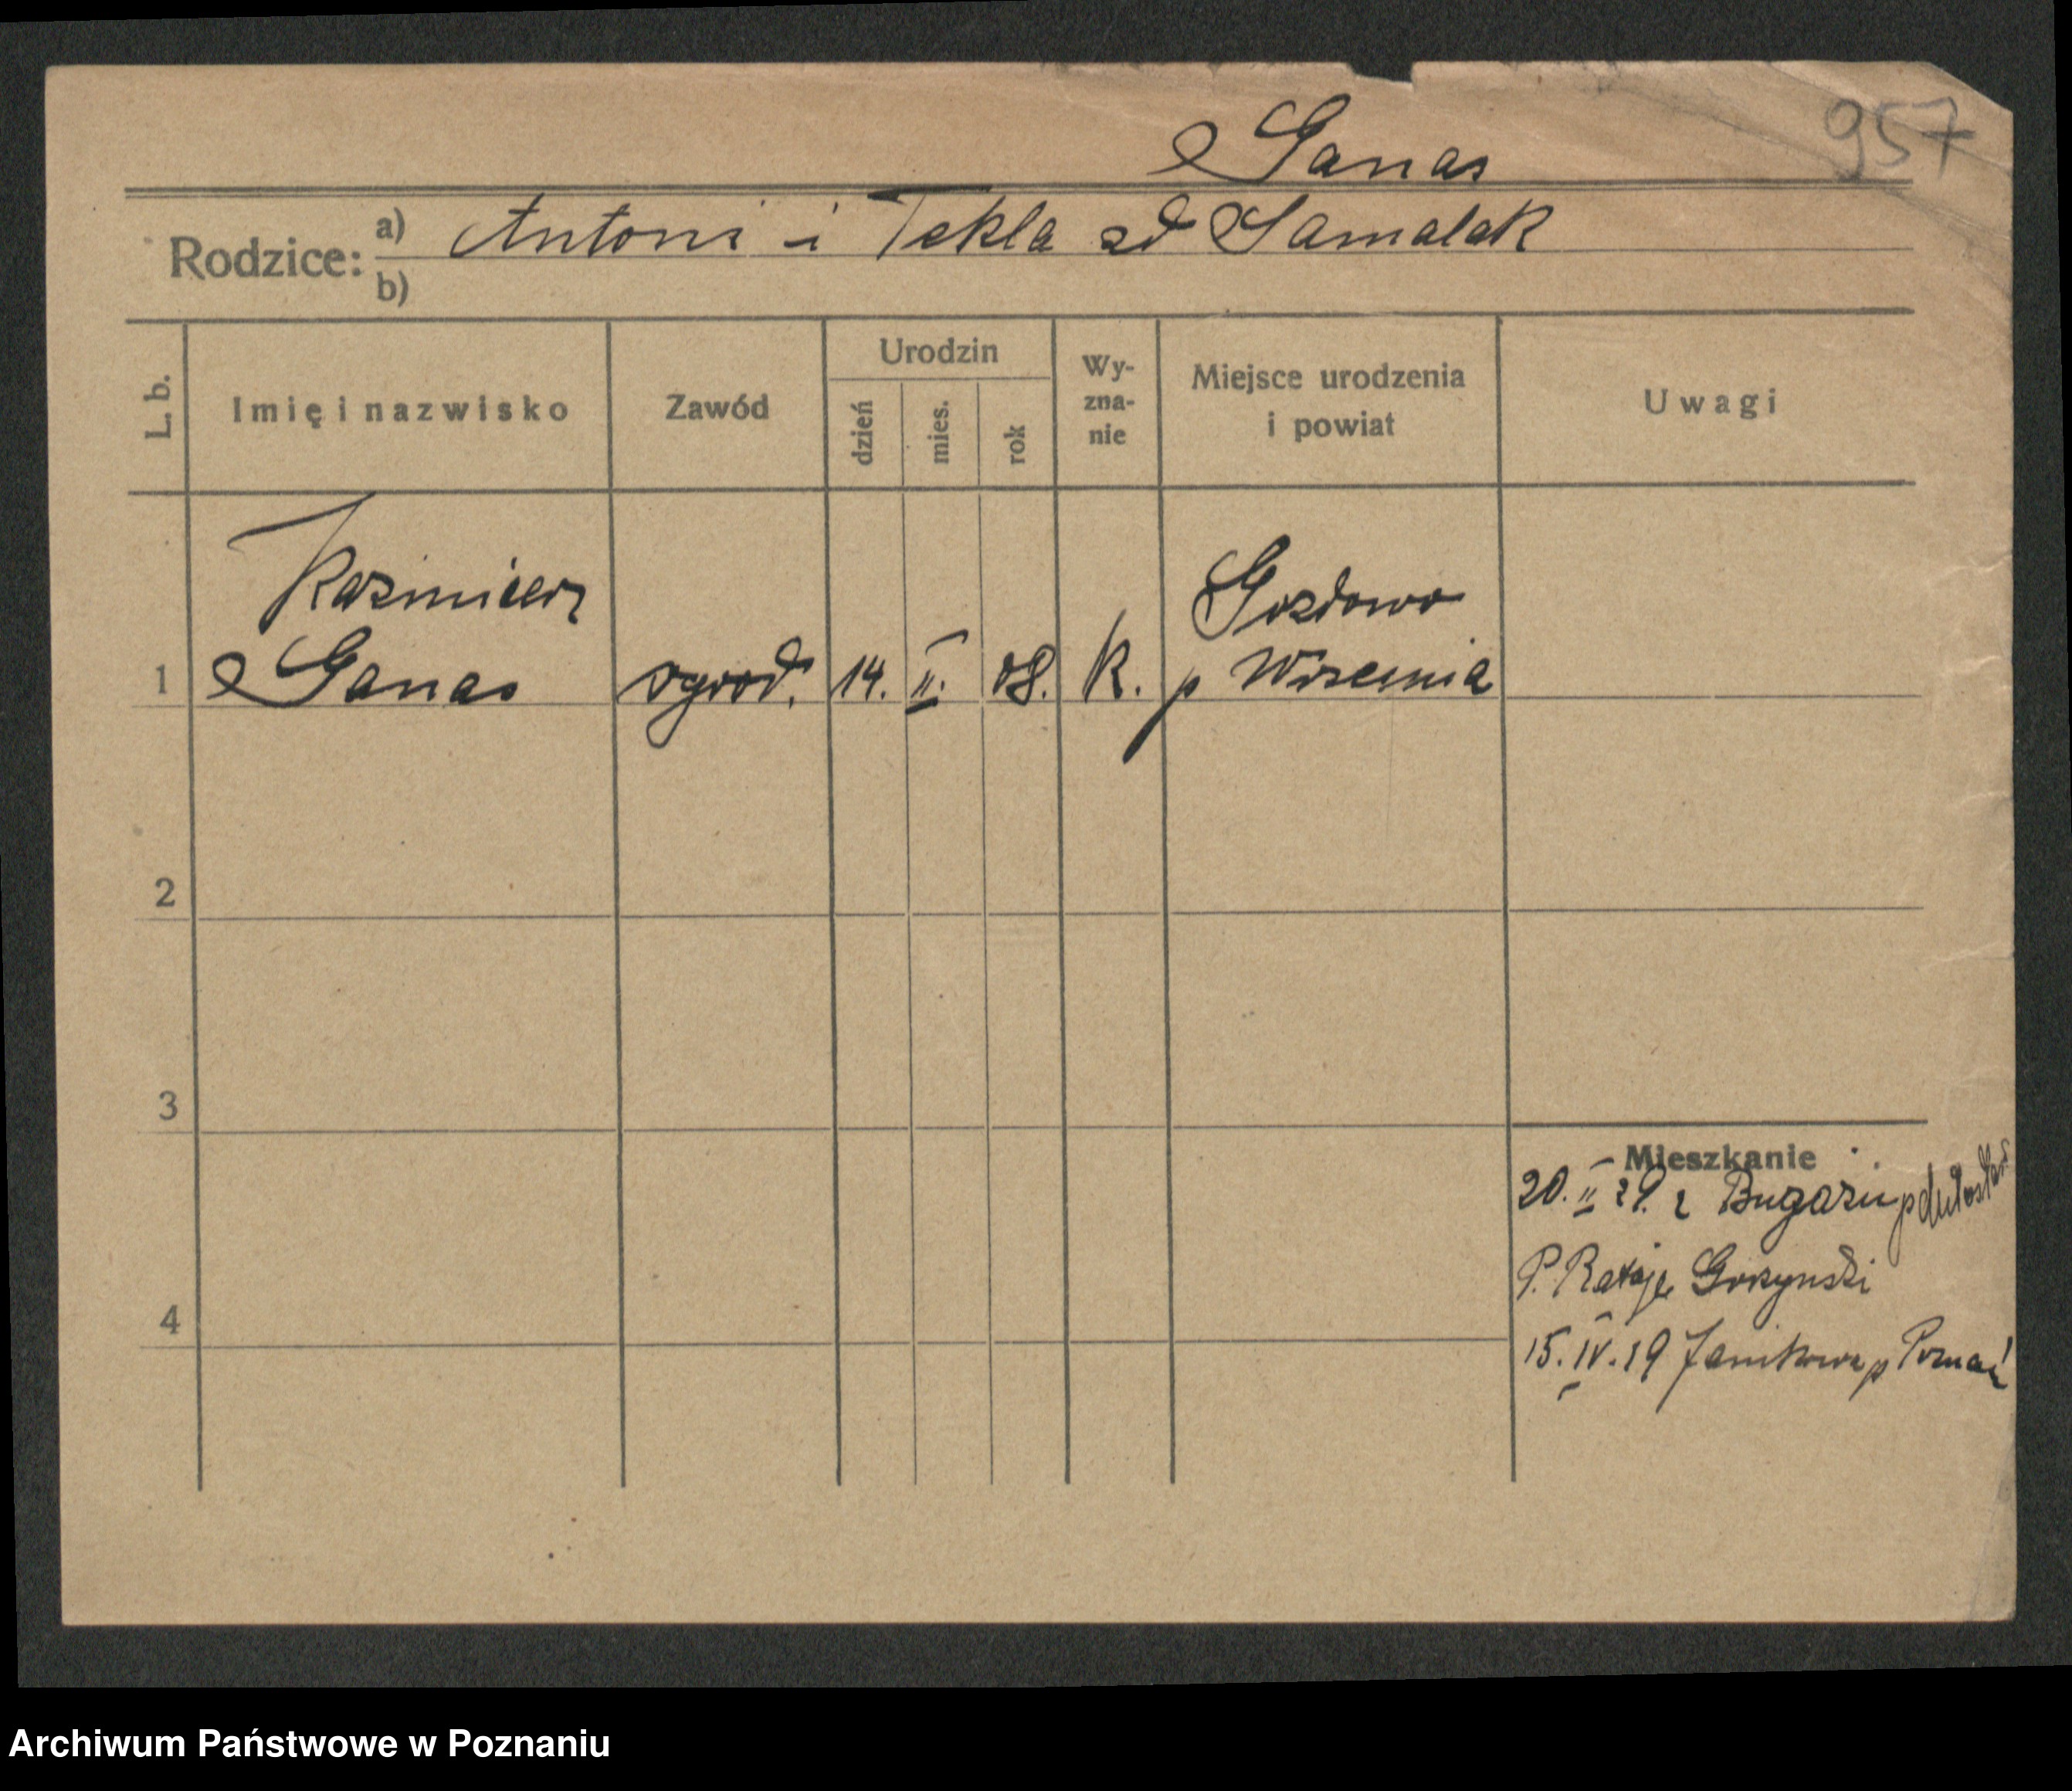 957
Ganas
Rodzice: a) Antoni i Tekla zd Samalak
b)
L. b.
Imię i nazwisko
Zawód
Urodzin
dzień
mies.
rok
Wy-
zna-
nie
Miejsce urodzenia
i powiat
Uwagi
Kazimierz
Gozdowo
1 Ganas ogrod. 14. II. 08. K. p Wrzesnia
2
3
4
Mieszkanie
20. II 29. z Bugaju p
P. Rataje Gorzynski
15. IV. 29 Janikowo p Poznań
Archiwum Państwowe w Poznaniu